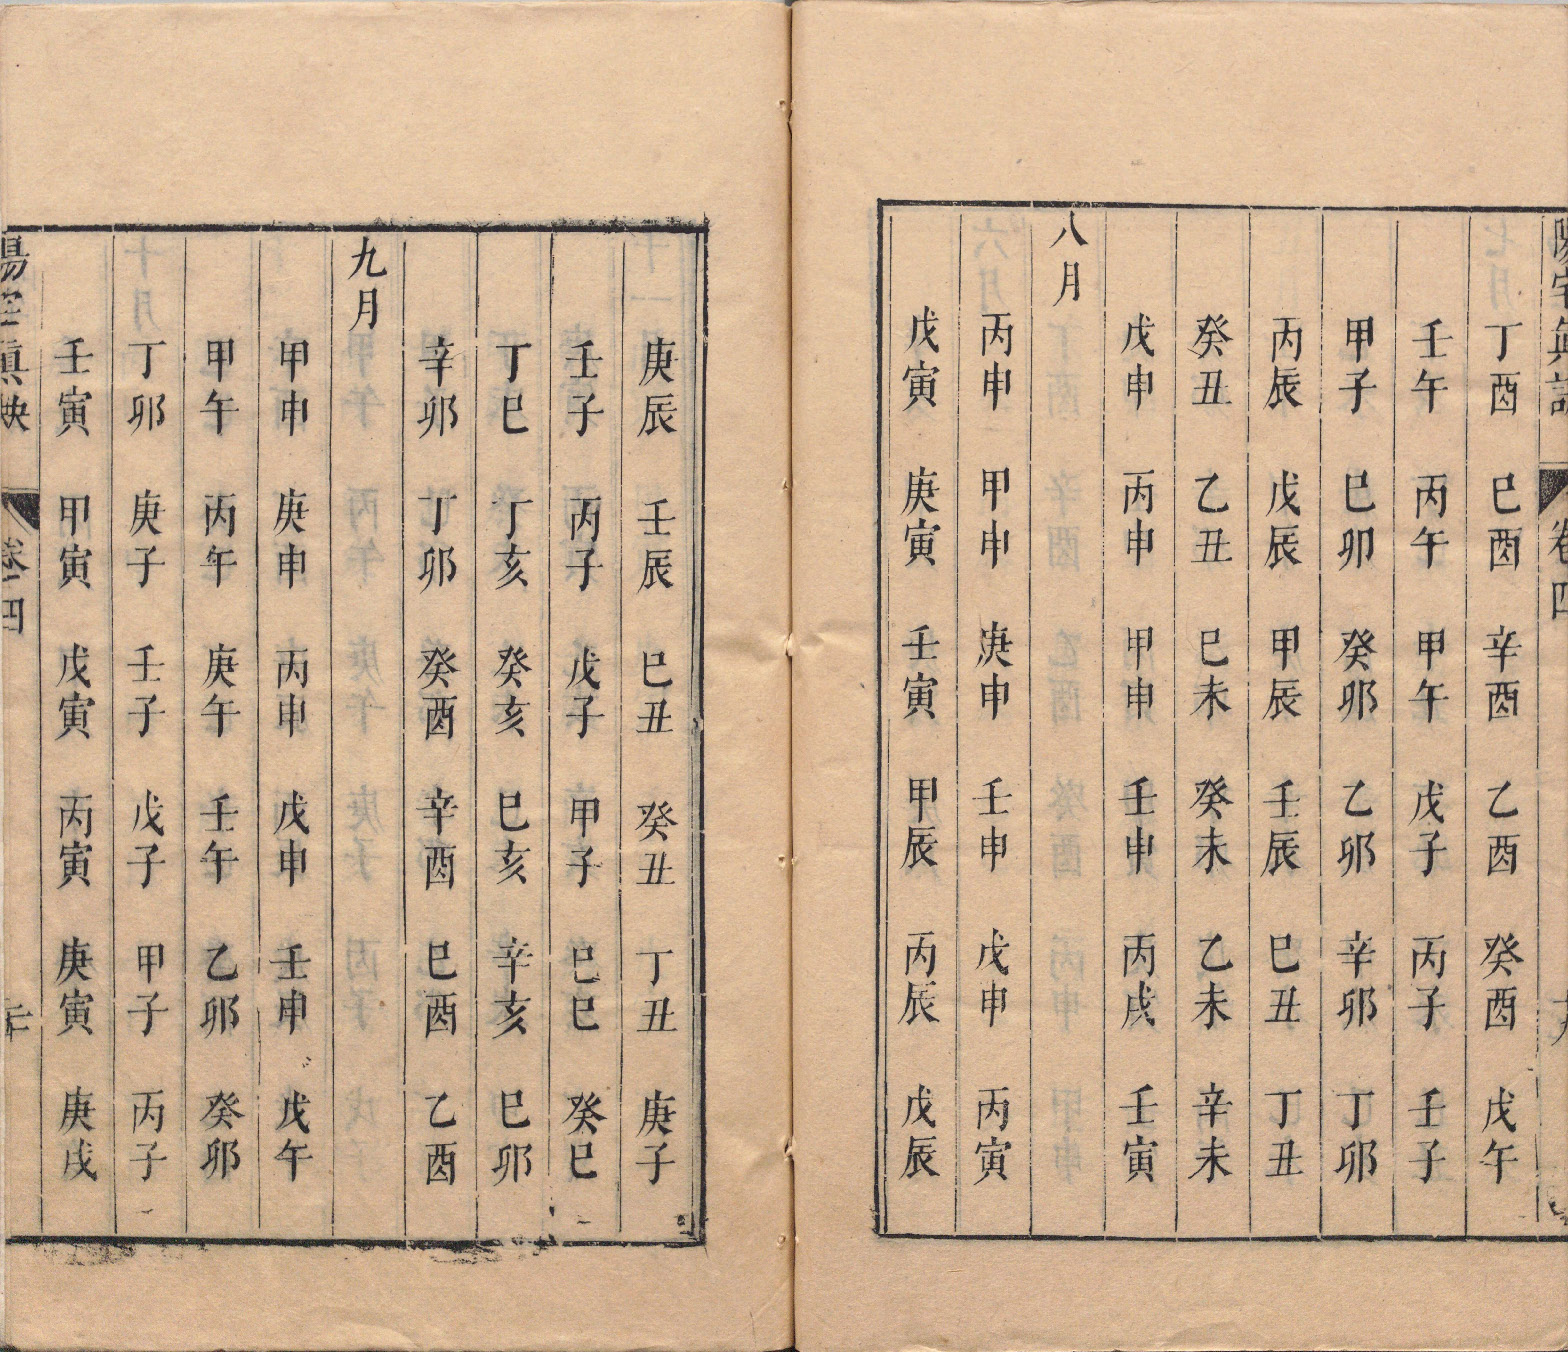 陽宅眞訣 卷四
丁酉 巳酉 辛酉 乙酉 癸酉 戊午
壬午 丙午 甲午 戊子 丙子 壬子
甲子 巳卯 癸卯 乙卯 辛卯 丁卯
丙辰 戊辰 甲辰 壬辰 巳丑 丁丑
癸丑 乙丑 巳未 癸未 乙未 辛未
戊申 丙申 甲申 壬申 丙戌 壬寅
八月
丙申 甲申 庚申 壬申 戊申 丙寅
戊寅 庚寅 壬寅 甲辰 丙辰 戊辰
庚辰 壬辰 巳丑 癸丑 丁丑 庚子
壬子 丙子 戊子 甲子 巳巳 癸巳
丁巳 丁亥 癸亥 巳亥 辛亥 巳卯
辛卯 丁卯 癸酉 辛酉 巳酉 乙酉
九月
甲申 庚申 丙申 戊申 壬申 戊午
甲午 丙午 庚午 壬午 乙卯 癸卯
丁卯 庚子 壬子 戊子 甲子 丙子
壬寅 甲寅 戊寅 丙寅 庚寅 庚戌
陽宅眞訣 卷四